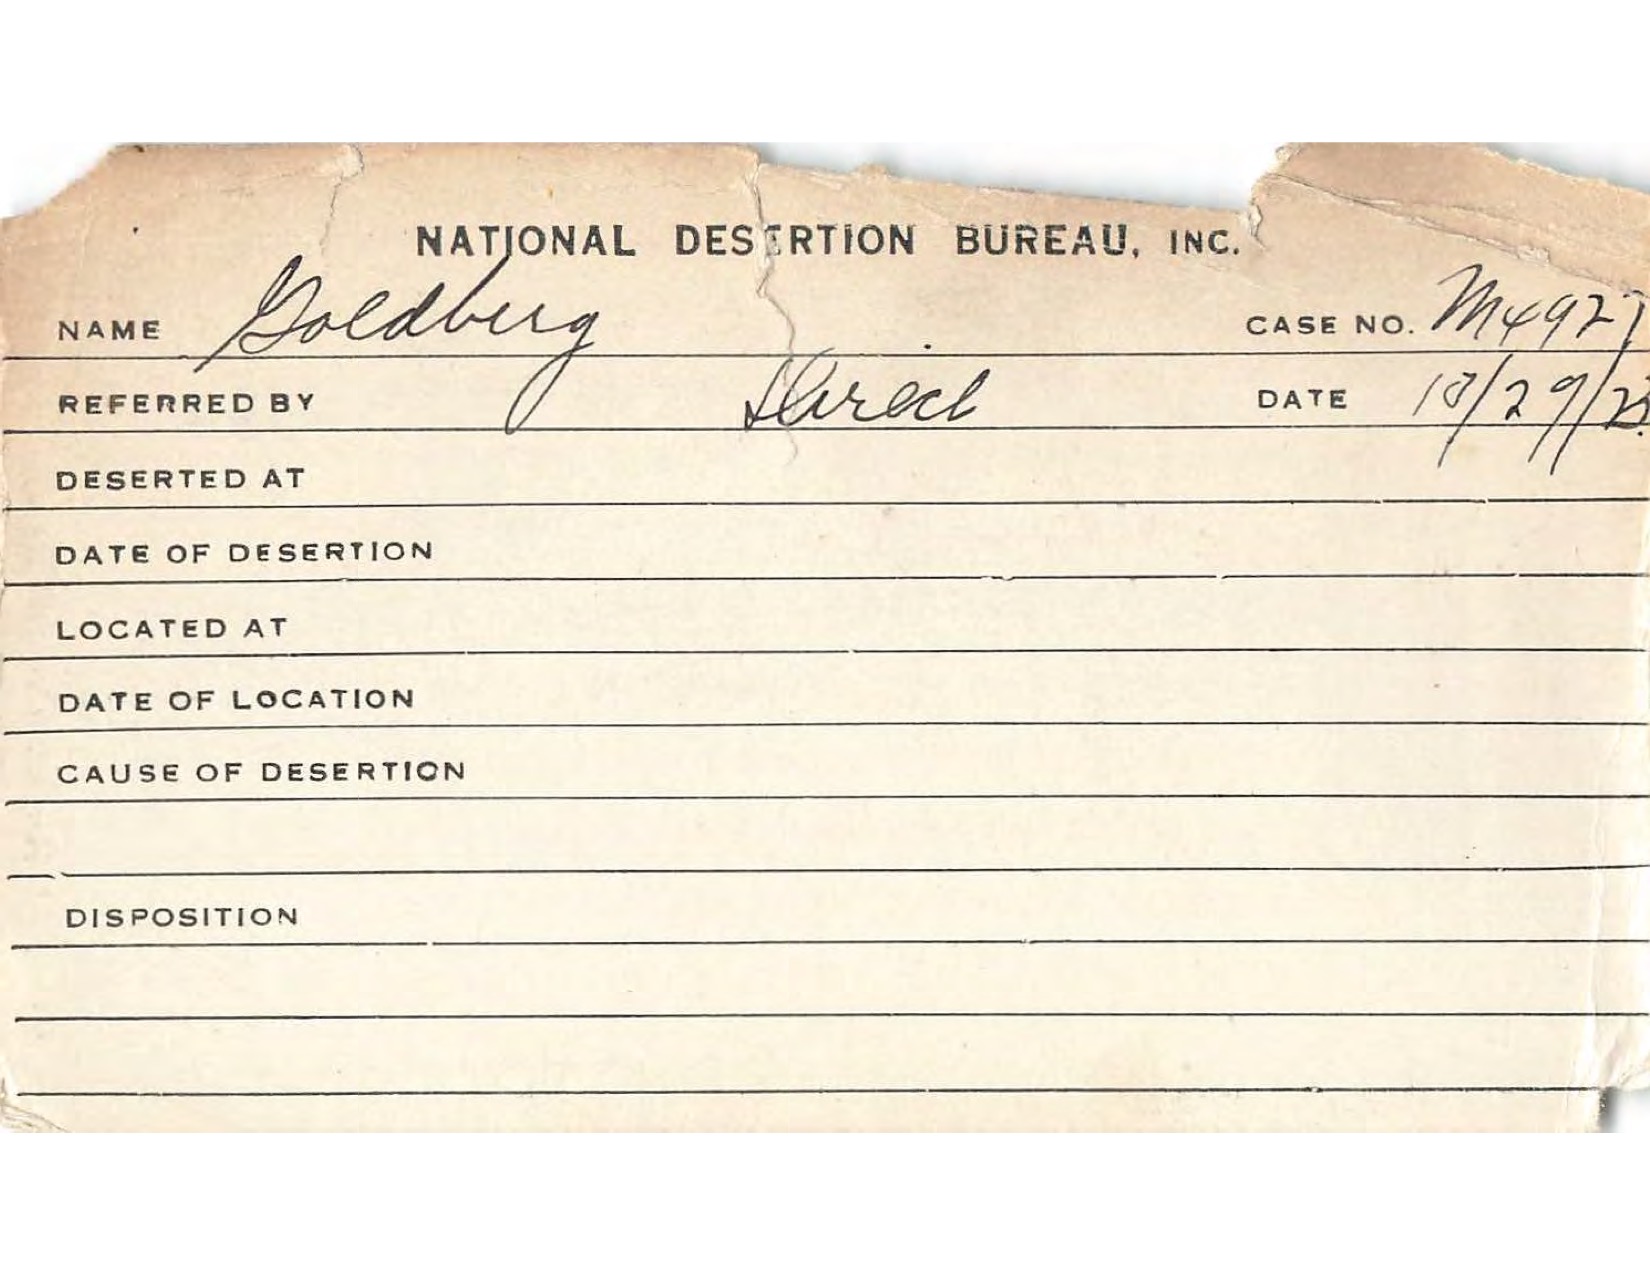 NATIONAL DESERTION BUREAU, INC.
NAME Goldberg CASE NO. M4927
REFERRED BY Direct DATE 10/29/
DESERTED AT
DATE OF DESERTION
LOCATED AT
DATE OF LOCATION
CAUSE OF DESERTION
DISPOSITION